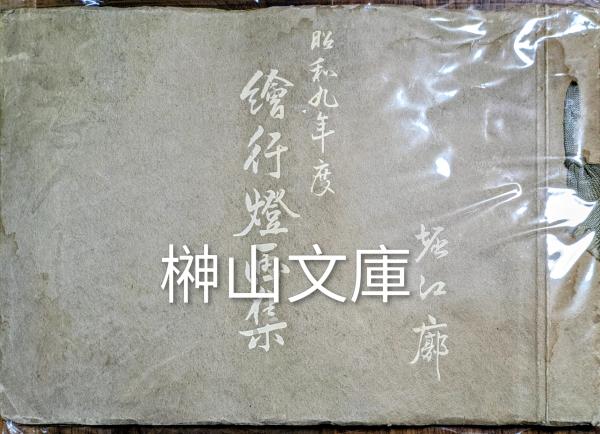 堀江廓
昭和九年度
繪行燈画集
榊山文庫